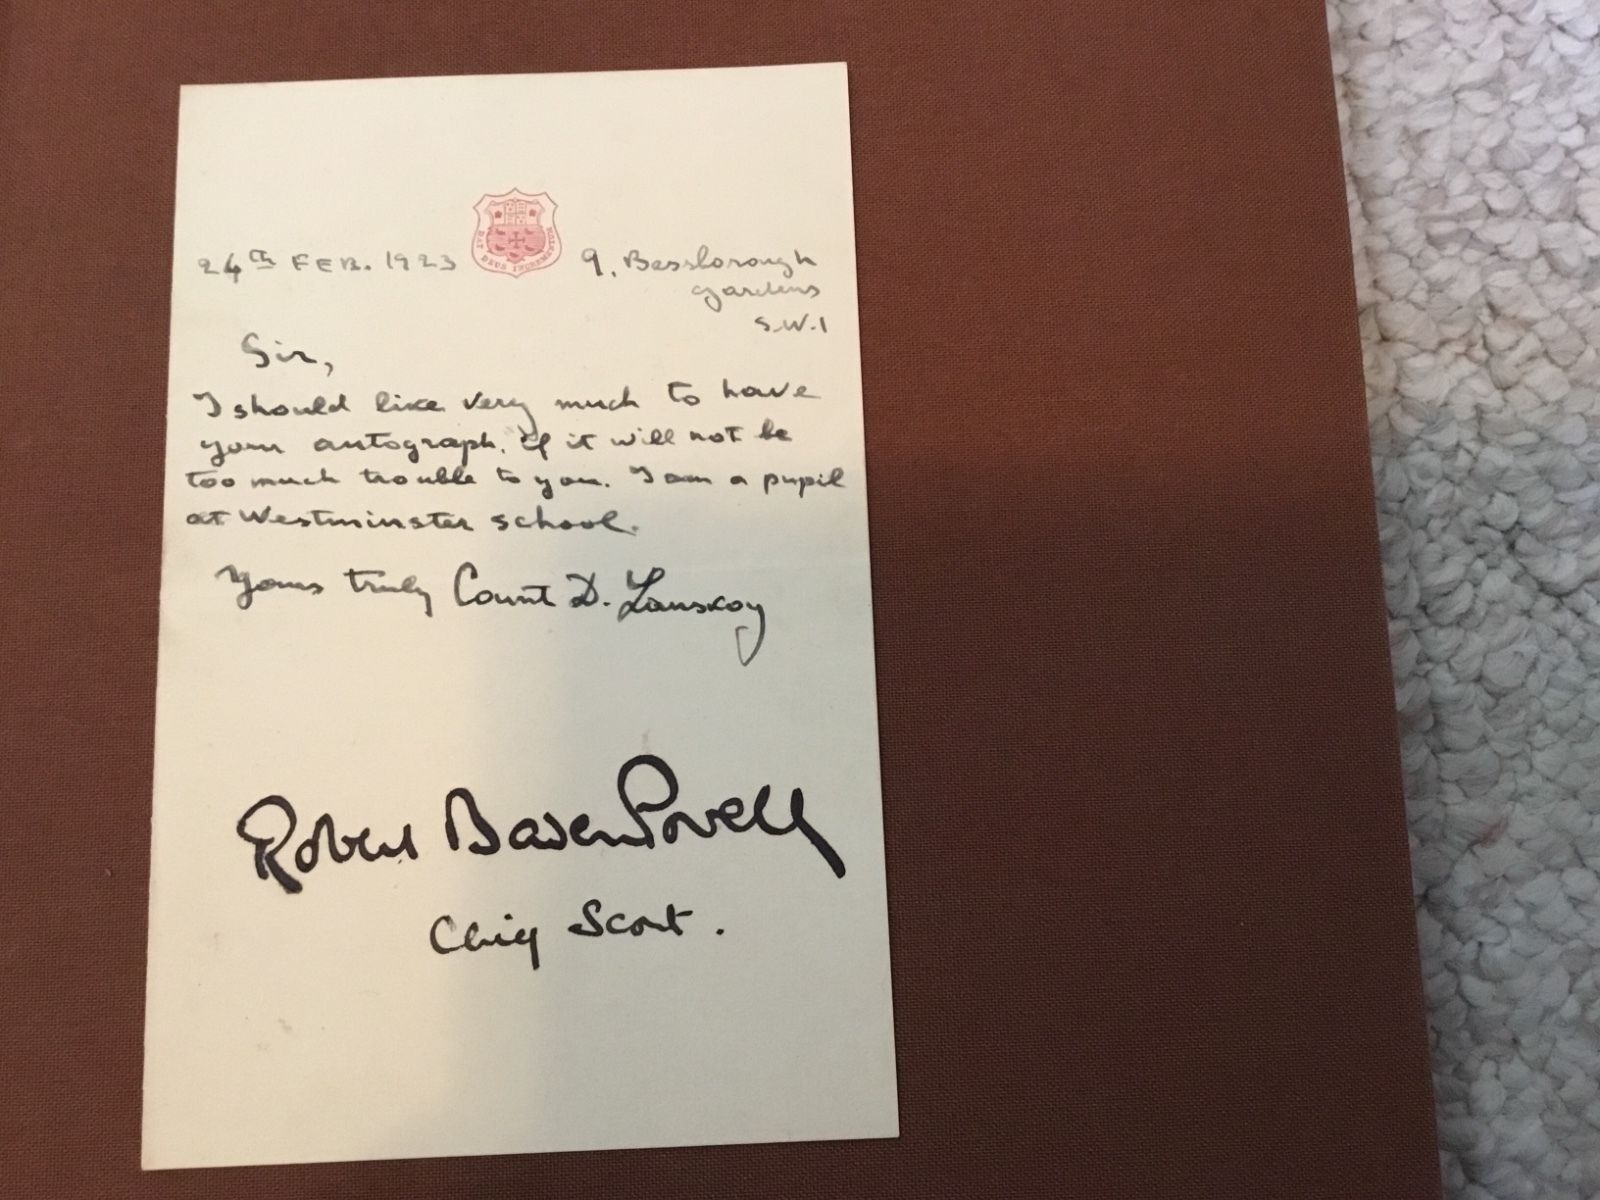 24th FEB. 1923
DAT DEUS INCREMENTUM
9, Bessborough
Gardens
S.W.1
Sir,
I should like very much to have
your autograph, if it will not be
too much trouble to you. I am a pupil
at Westminster school.
Yours truly Count D. Lanskoy
Robert Baden Powell
Chief Scout.